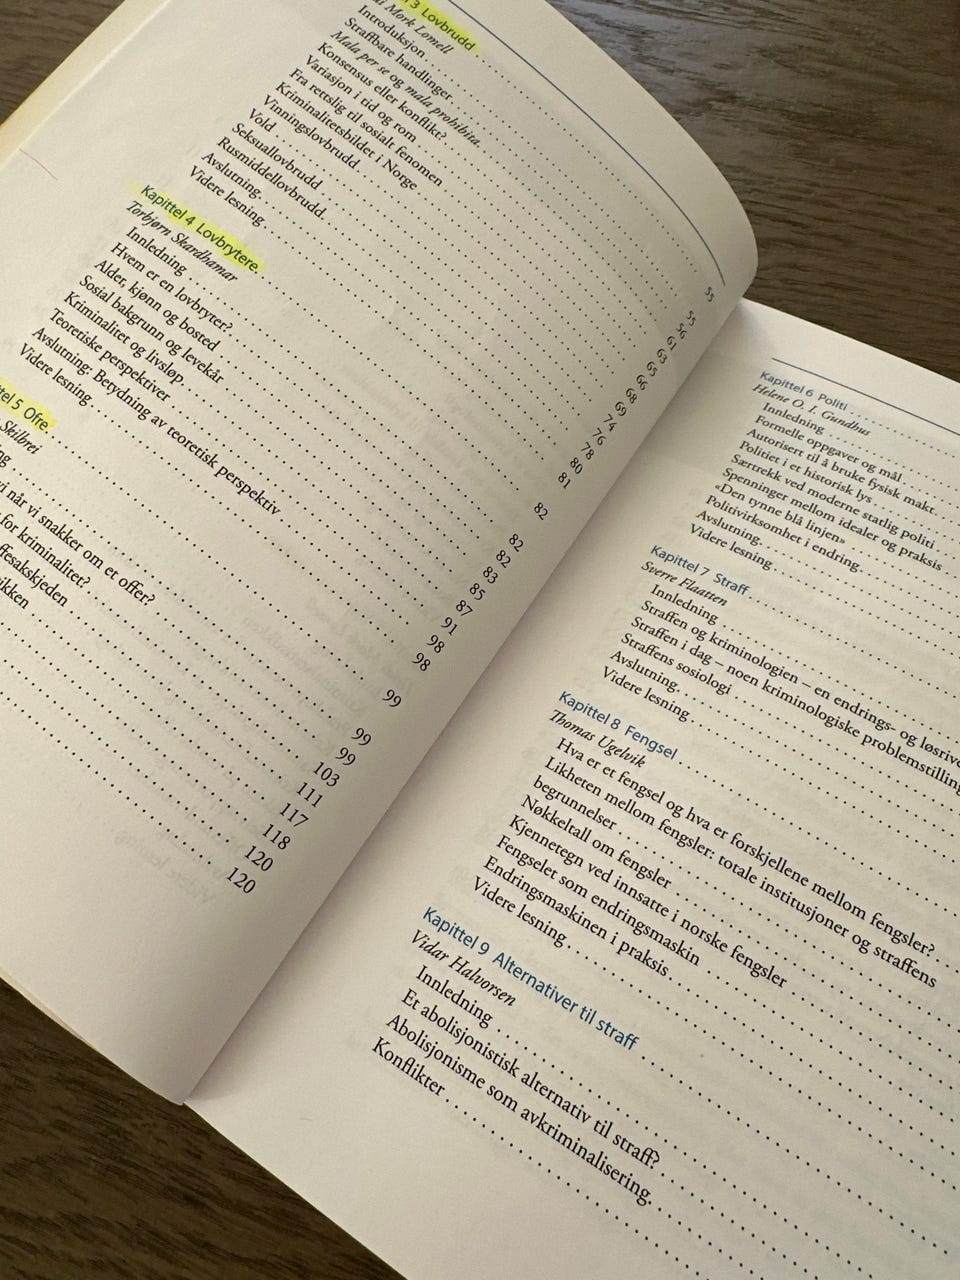 3 Lovbrudd 55
Mork Lomell
Introduksjon 55
Straffbare handlinger 56
Mala per se og mala prohibita 61
Konsensus eller konflikt? 63
Variasjon i tid og rom 65
Fra rettslig til sosialt fenomen 66
Kriminalitetsbildet i Norge 68
Vinningslovbrudd 69
Vold 74
Seksuallovbrudd 76
Rusmiddellovbrudd 78
Avslutning 80
Videre lesning 81
Kapittel 4 Lovbrytere 82
Torbjørn Skardhamar
Innledning 82
Hvem er en lovbryter? 82
Alder, kjønn og bosted 83
Sosial bakgrunn og levekår 85
Kriminalitet og livsløp 87
Teoretiske perspektiver 91
Avslutning: Betydning av teoretisk perspektiv 98
Videre lesning 98
5 Ofre 99
Skilbrei
99
vi når vi snakker om et offer? 99
for kriminalitet? 103
111
117
118
120
120
Kapittel 6 Politi
Helene O. I. Gundhus
Innledning
Formelle oppgaver og mål
Autorisert til å bruke fysisk makt
Politiet i et historisk lys
Særtrekk ved moderne statlig politi
Spenninger mellom idealer og praksis
«Den tynne blå linjen»
Politivirksomhet i endring
Avslutning
Videre lesning
Kapittel 7 Straff
Sverre Flaatten
Innledning
Straffen og kriminologien – en endrings- og
Straffen i dag – noen kriminologiske
Straffens sosiologi
Avslutning
Videre lesning
Kapittel 8 Fengsel
Thomas Ugelvik
Hva er et fengsel og hva er forskjellene mellom fengsler?
Likheten mellom fengsler: totale institusjoner og straffens
begrunnelser
Nøkkeltall om fengsler
Kjennetegn ved innsatte i norske fengsler
Fengselet som endringsmaskin
Endringsmaskinen i praksis
Videre lesning
Kapittel 9 Alternativer til straff
Vidar Halvorsen
Innledning
Et abolisjonistisk alternativ til straff?
Abolisjonisme som avkriminalisering
Konflikter